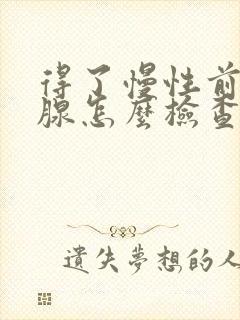 得了慢性前
腺怎麼檢查
遺失夢想的人